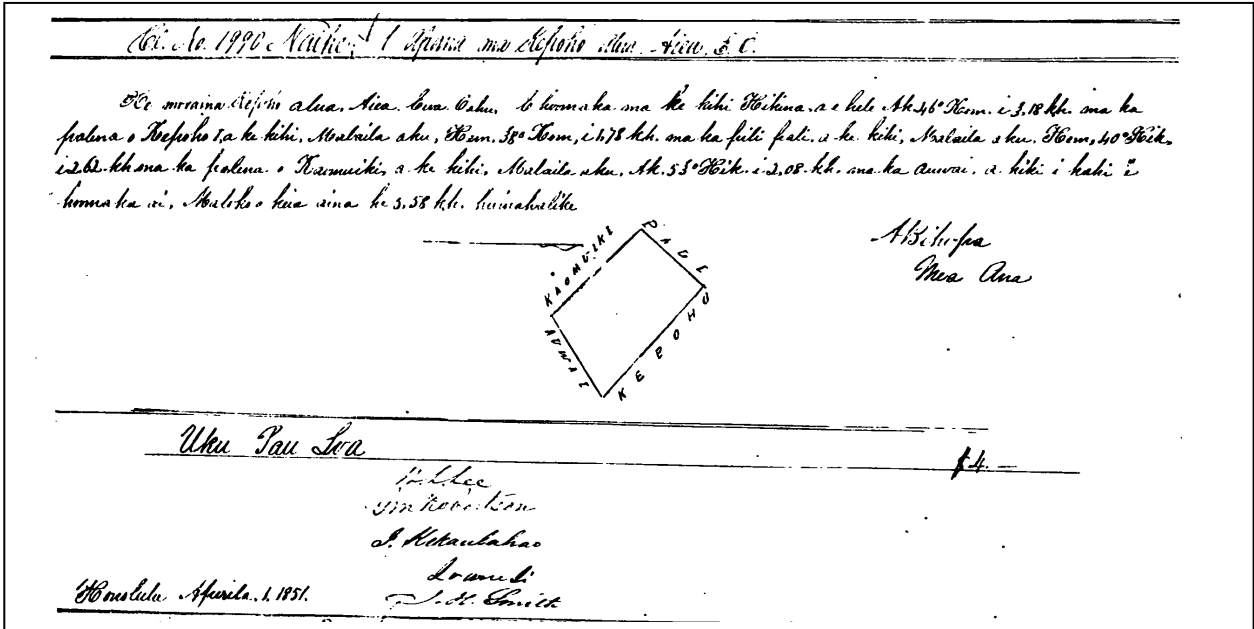 No. 1990 Naihe, 1 Apana ma Kepoho alua. Aiea. E.O.
Ke moraina Kepoho alua, Aiea. Ewa Oahu. E hoomaka ma ke kihi Hikina, a e hele Ak. 46° Kom. i 3,18 kh. ma ka
palena o Kepoho 1, a ke kihi, Malaila aku, Hem. 38° Kom, i 1,78 kh. ma ka pili pali, a ke kihi, Malaila aku, Hem. 40° Hik.
i 2,62 kh ma ka palena o Kaomuiki, a ke kihi, Malaila aku, Ak. 53° Hik. i 2,08 kh. ma ka auwai, a hiki i kahi i
hoomaka ai, Maloko o keia aina he 5.58 kh. huinahalike
A Bihopa
Mea Ana
KAOMUIKI
PALI
AUWAI
KEPOHU
Uku Pau Loa $4.
W. L. Lee
G M Robertson
J. Kekaulahao
Ioane Ii
J. H. Smith
Honolulu Aperila. 1. 1851.